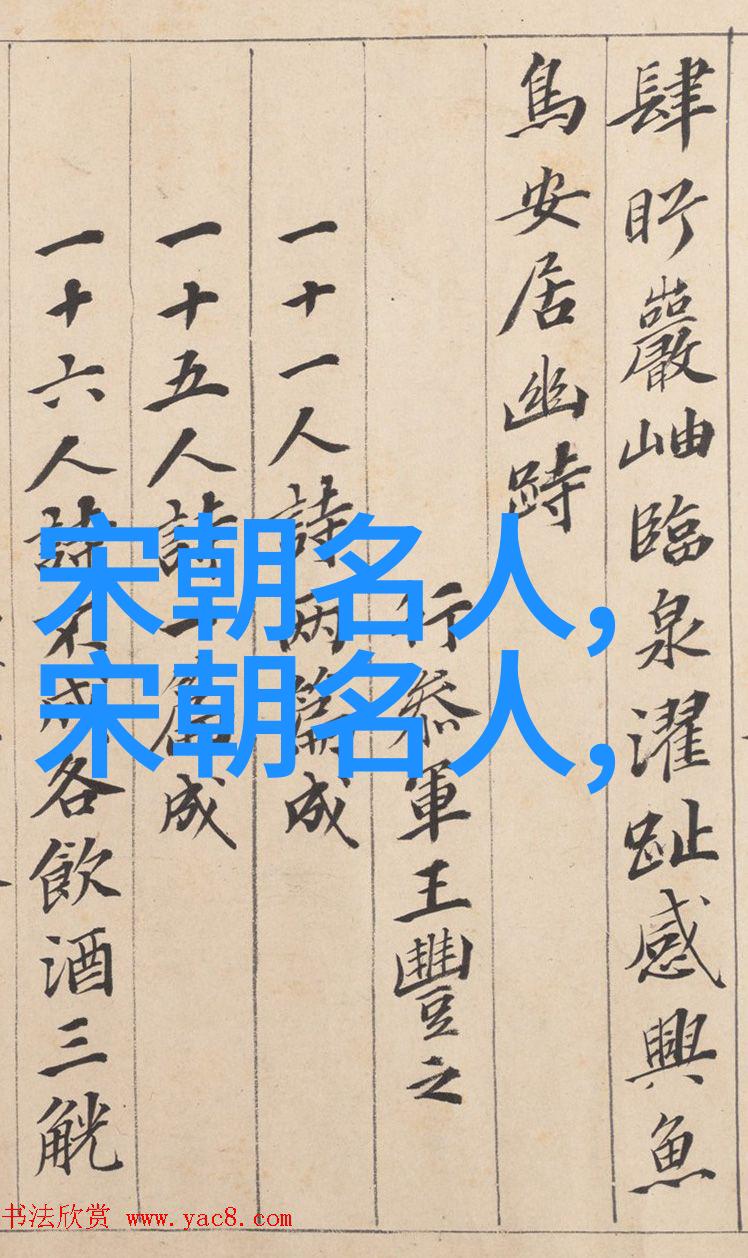 肆盱巖岫臨泉濯趾感興魚
鳥安居幽跱
行叅軍王豐之
一十一人詩兩篇成
一十五人詩一篇成
一十六人詩不成各飲酒三觥
宋朝名人,
宋朝名人,
书法欣赏 www.yac8.com